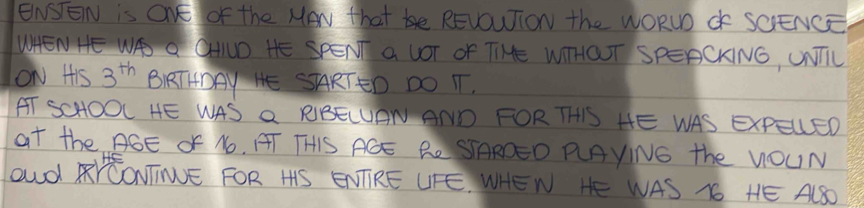 EINSTEIN is ONE of the MAN that be REVOLUTION the WORLD of SCIENCE
WHEN HE WAS a CHILD HE SPENT a LOT OF TIME WITHOUT SPEACKING, UNTIL
ON HIS 3th BIRTHDAY HE STARTED DO IT.
AT SCHOOL HE WAS a RIBELLIAN AND FOR THIS HE WAS EXPELLED
at the AGE OF 16. AT THIS AGE he STARDED PLAYING the VIOLIN
and HE CONTINUE FOR HIS ENTIRE LIFE. WHEN HE WAS 16 HE ALSO